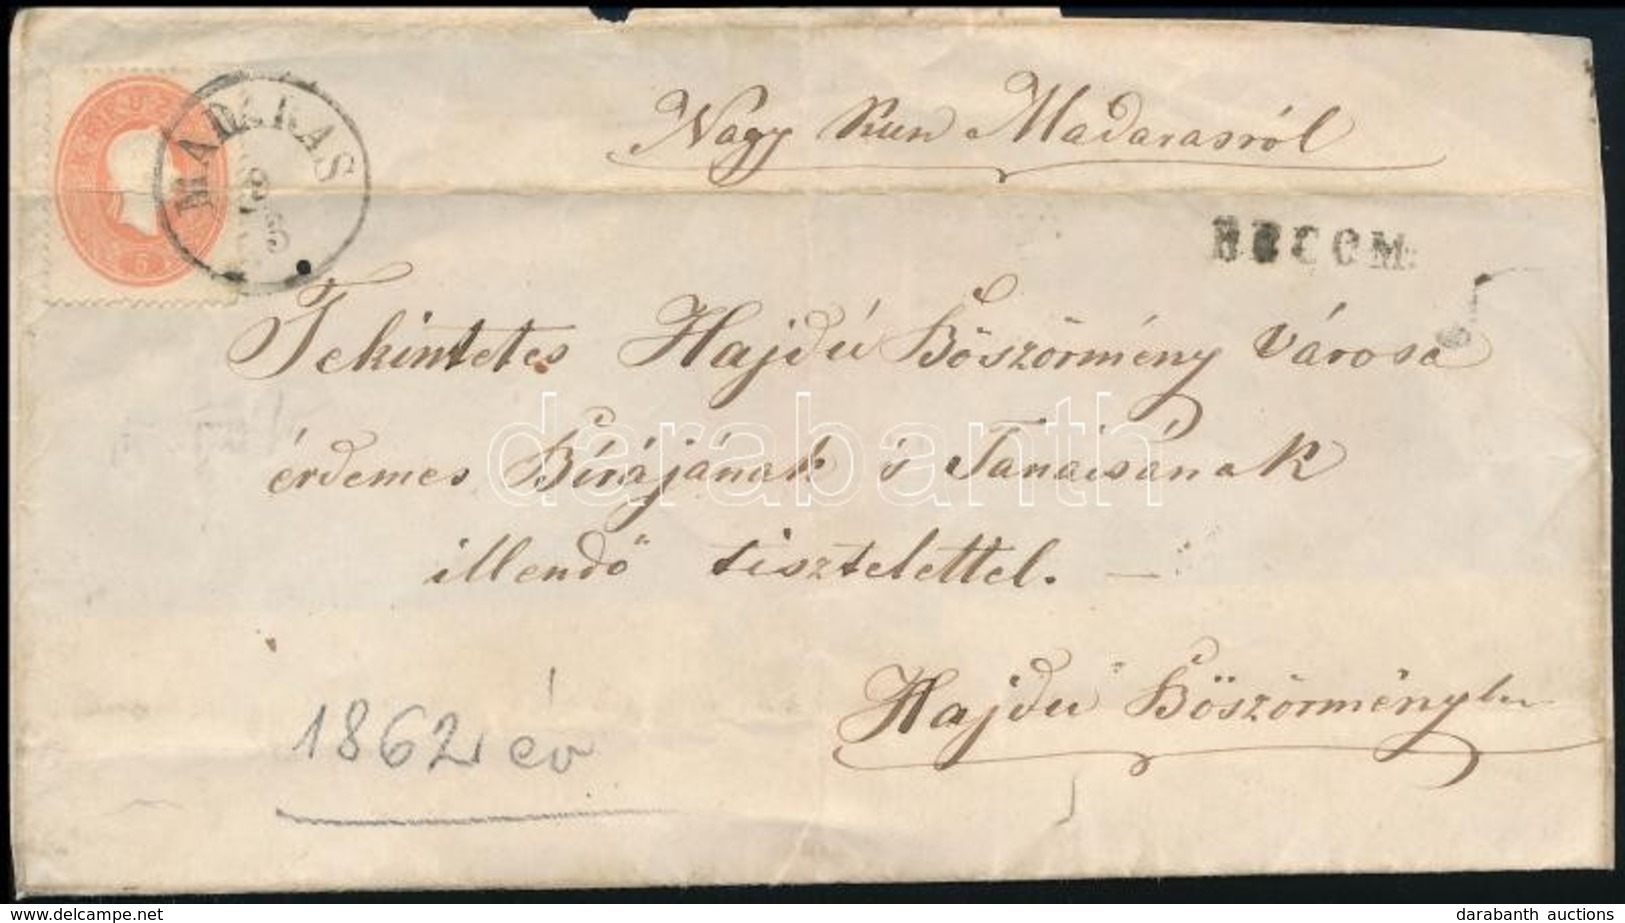 Nagy Kun Madarasról
MADARAS
RECOM.
Tekintetes Hajdú Böszörmény Városa
érdemes Bírájának s Tanácsának
illendő tisztelettel.
Hajdu Böszörményben
1862 év
5
darabanth
www.delcampe.net
darabanth auctions